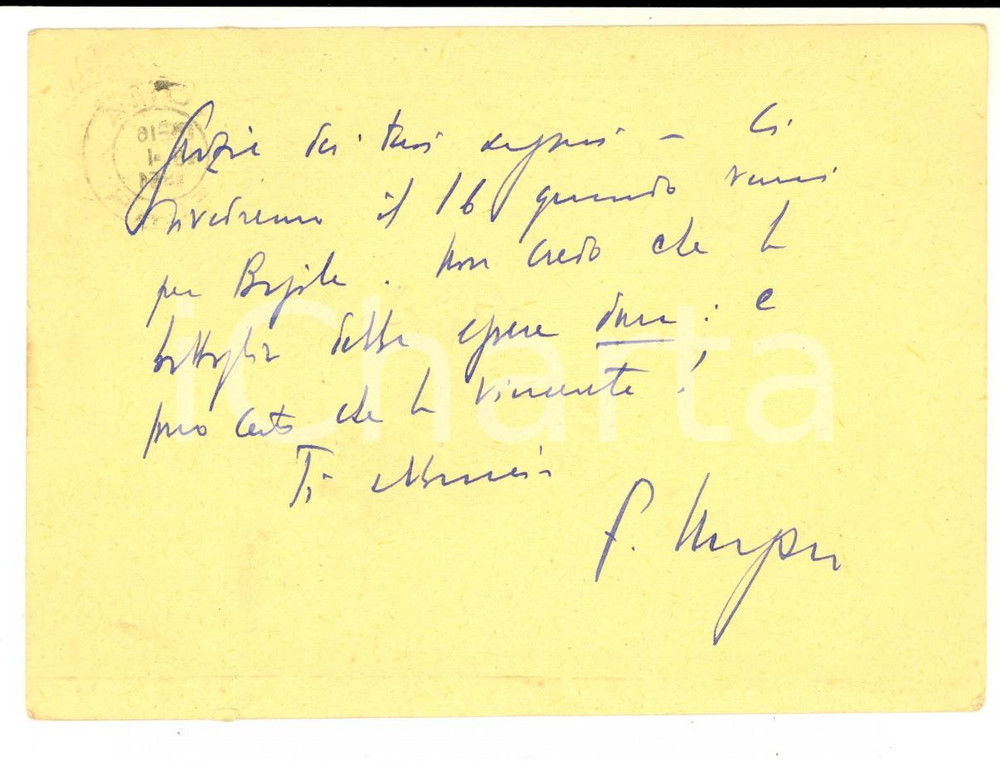 Grazie dei tuoi auguri – Ci
rivedremo il 16 quando verrai
per . Non credo che la
battaglia debba essere dura: e
sono certo che la vincerete!
Ti abbraccio
F.
iCharta